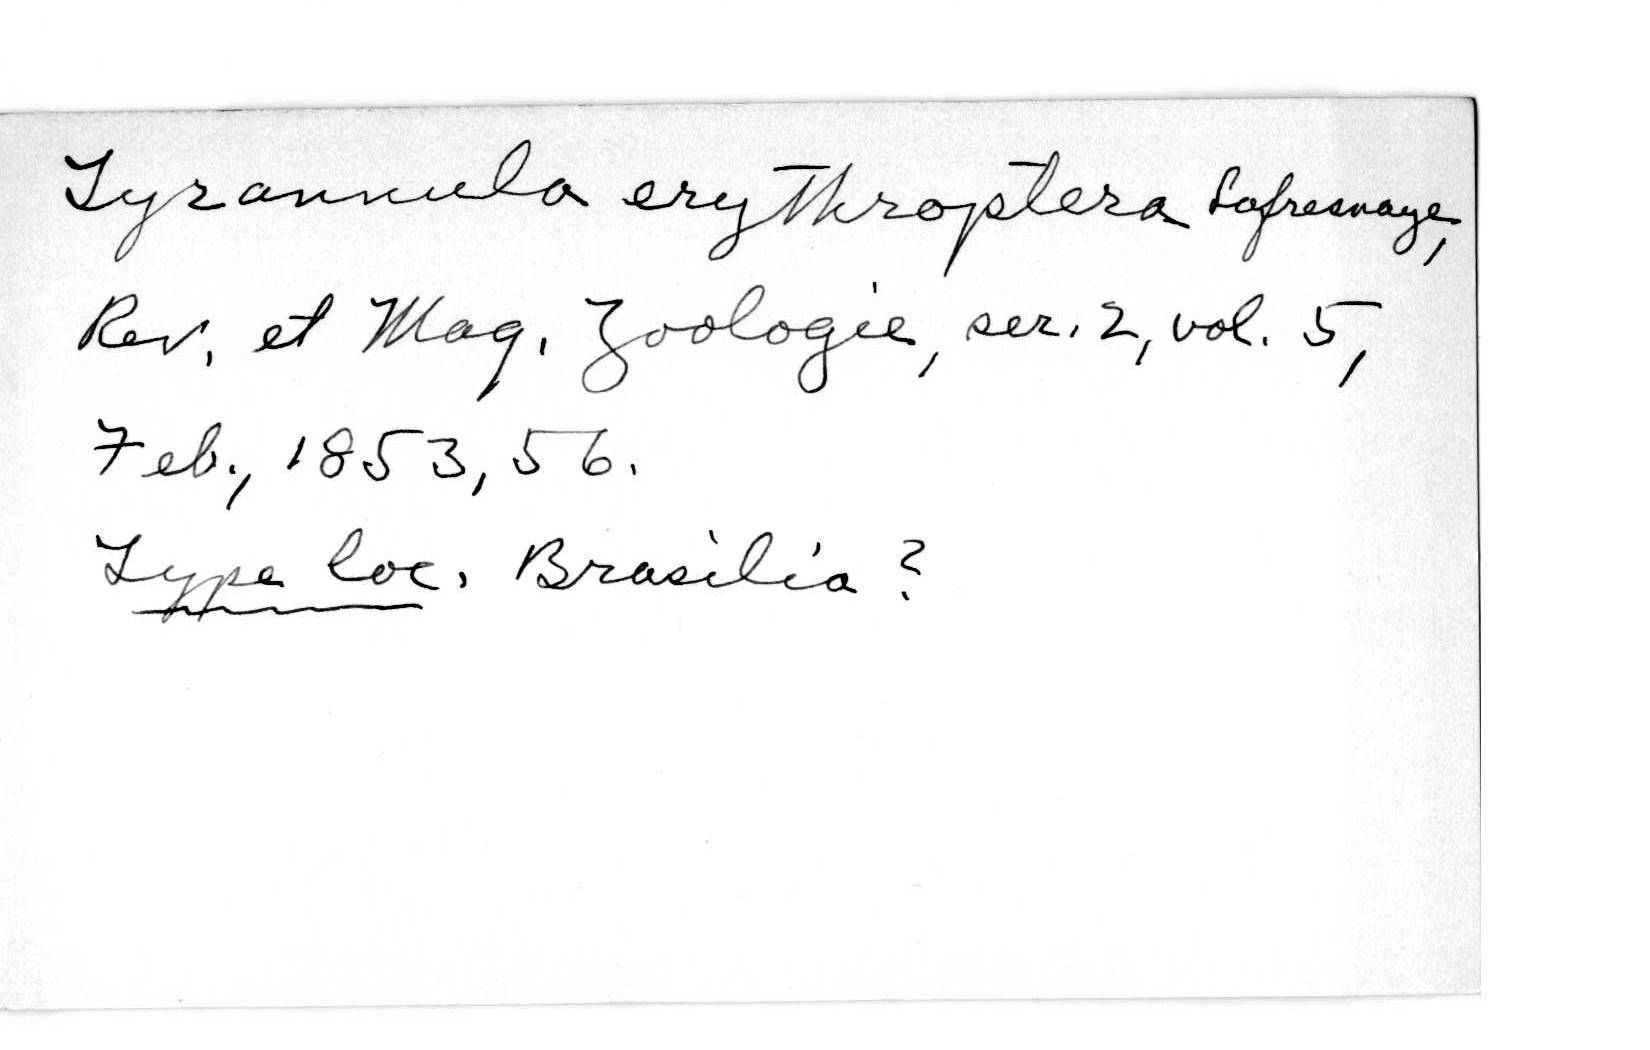 Tyrannula erythroptera Lafresnaye,
Rev. et Mag. Zoologie, ser. 2, vol. 5,
Feb., 1853, 56.
Type loc. Brasilia?